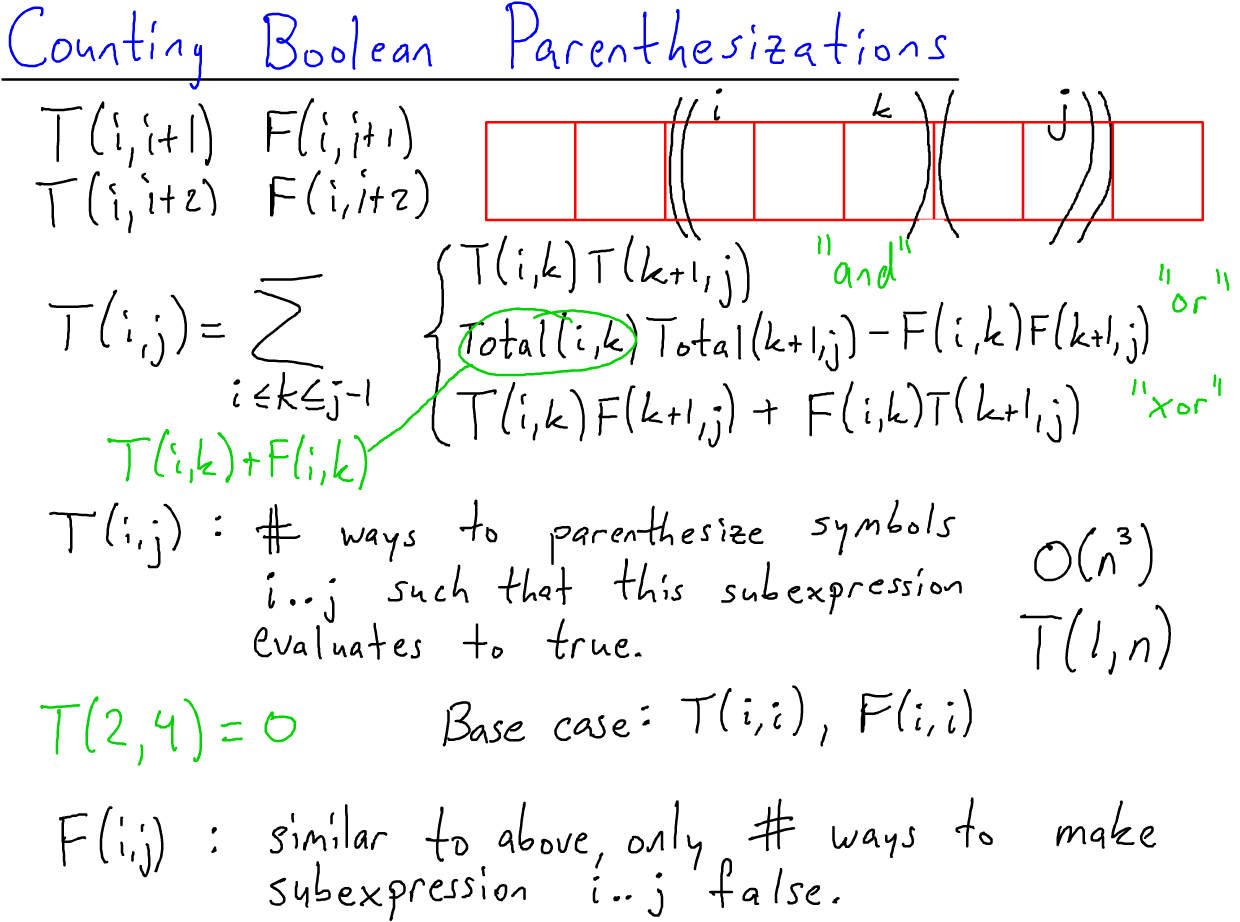 Counting Boolean Parenthesizations
T(i,i+1) F(i,i+1)
T(i,i+2) F(i,i+2)
((i k)( j))
T(i,j) = ∑ i≤k≤j-1 {
T(i,k)T(k+1,j) "and"
Total(i,k)Total(k+1,j) - F(i,k)F(k+1,j) "or"
T(i,k)F(k+1,j) + F(i,k)T(k+1,j) "xor"
T(i,k)+F(i,k)
T(i,j) : # ways to parenthesize symbols
i..j such that this subexpression
evaluates to true.
O(n³)
T(1,n)
T(2,4) = 0
Base case: T(i,i), F(i,i)
F(i,j) : similar to above, only # ways to make
subexpression i..j false.